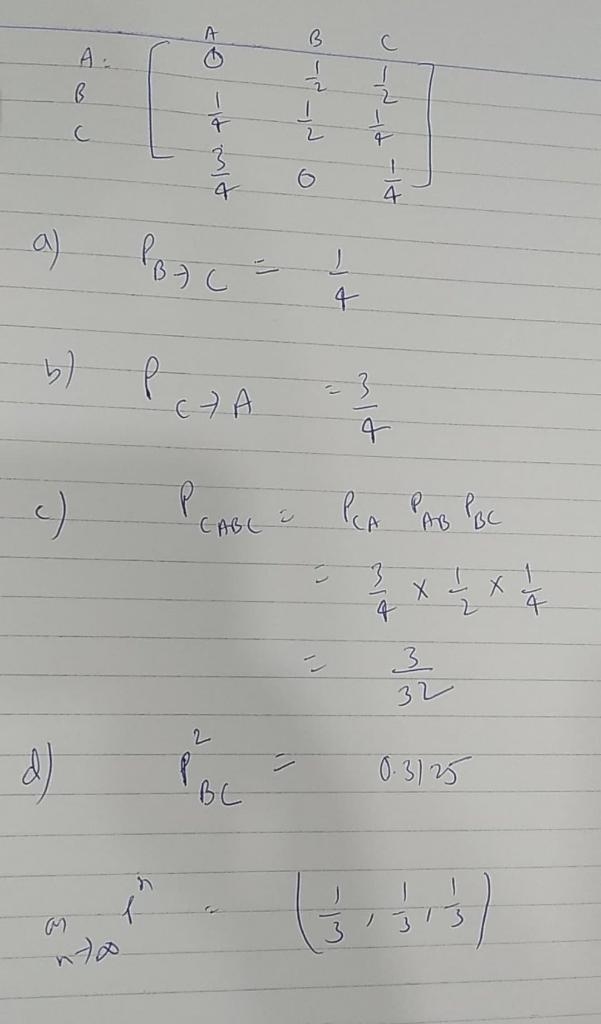 A B C
A: 0 1/2 1/2
B 1/4 1/2 1/4
C 3/4 0 1/4
a) P_{B→C} = 1/4
b) P_{C→A} = 3/4
c) P_{CABC} = P_{CA} P_{AB} P_{BC}
= 3/4 × 1/2 × 1/4
= 3/32
d) P^2_{BC} = 0.3125
n→∞ P^n = (1/3, 1/3, 1/3)